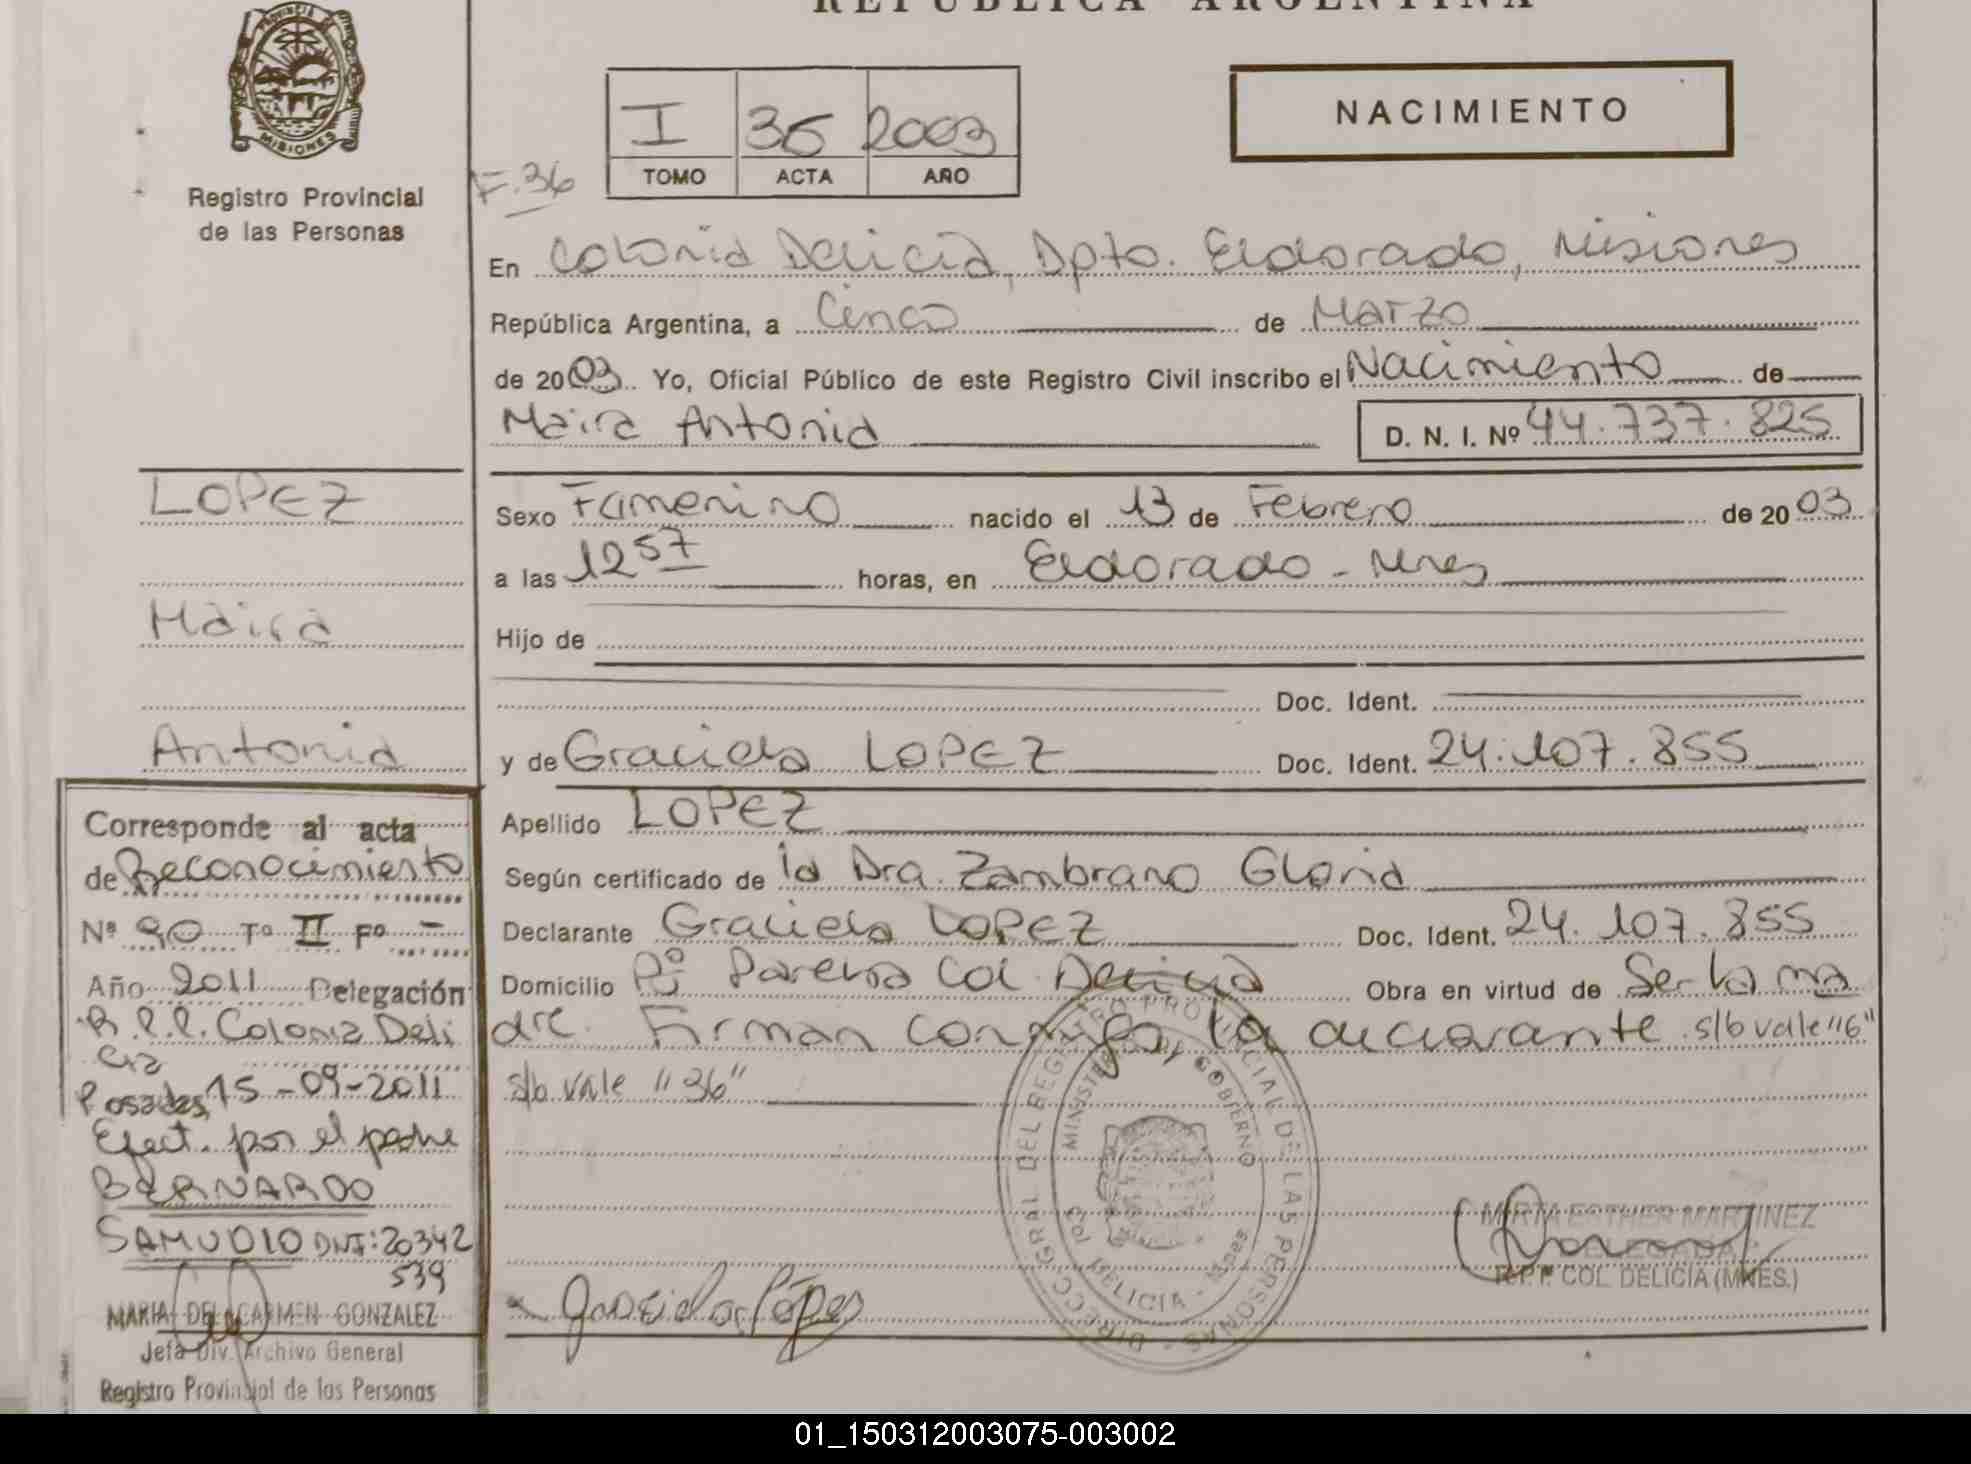 REPUBLICA ARGENTINA
PROVINCIA DE
MISIONES
Registro Provincial
de las Personas
I 36 2003
TOMO ACTA AÑO
F.36
NACIMIENTO
En Colonia Delicia, Dpto. Eldorado, Misiones
República Argentina, a Cinco de Marzo
de 2003. Yo, Oficial Público de este Registro Civil inscribo el Nacimiento de
Maira Antonia D. N. I. Nº 44.737.825
Sexo Femenino nacido el 13 de Febrero de 2003
a las 12 57 horas, en Eldorado - Mnes
Hijo de
Doc. Ident.
y de Graciela LOPEZ Doc. Ident. 24.107.855
Apellido LOPEZ
Según certificado de la Dra. Zambrano Gloria
Declarante Graciela LOPEZ Doc. Ident. 24.107.855
Domicilio Pº Col. Delicia Obra en virtud de Ser la ma
dre. Firman conmigo, la declarante s/b vale "6"
s/b vale "36"
LOPEZ
Maira
Antonia
Corresponde al acta
de Reconocimiento
Nº 90 Tº II Fº -
Año 2011 Delegación
R.P.P. Colonia Deli
cia
Posadas, 15-09-2011
Efect. por el padre
BERNARDO
SAMUDIO DNI: 20342
539
MARIA DEL CARMEN GONZALEZ
Jefa Div. Archivo General
Registro Provincial de las Personas
Graciela López
DIRECC. GRAL. DEL REGISTRO PROVINCIAL DE LAS PERSONAS
MINISTERIO GOBIERNO
COL. DELICIA - Mnes
MIRTA ESTHER MARTINEZ
DELEGADA
R.P.P. COL. DELICIA (MNES.)
01_150312003075-003002